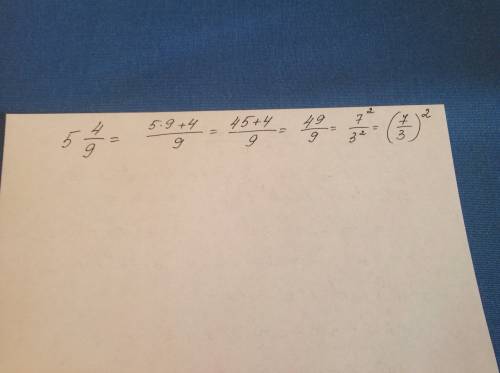 5 4/9 = (5·9+4)/9 = (45+4)/9 = 49/9 = 7²/3² = (7/3)²